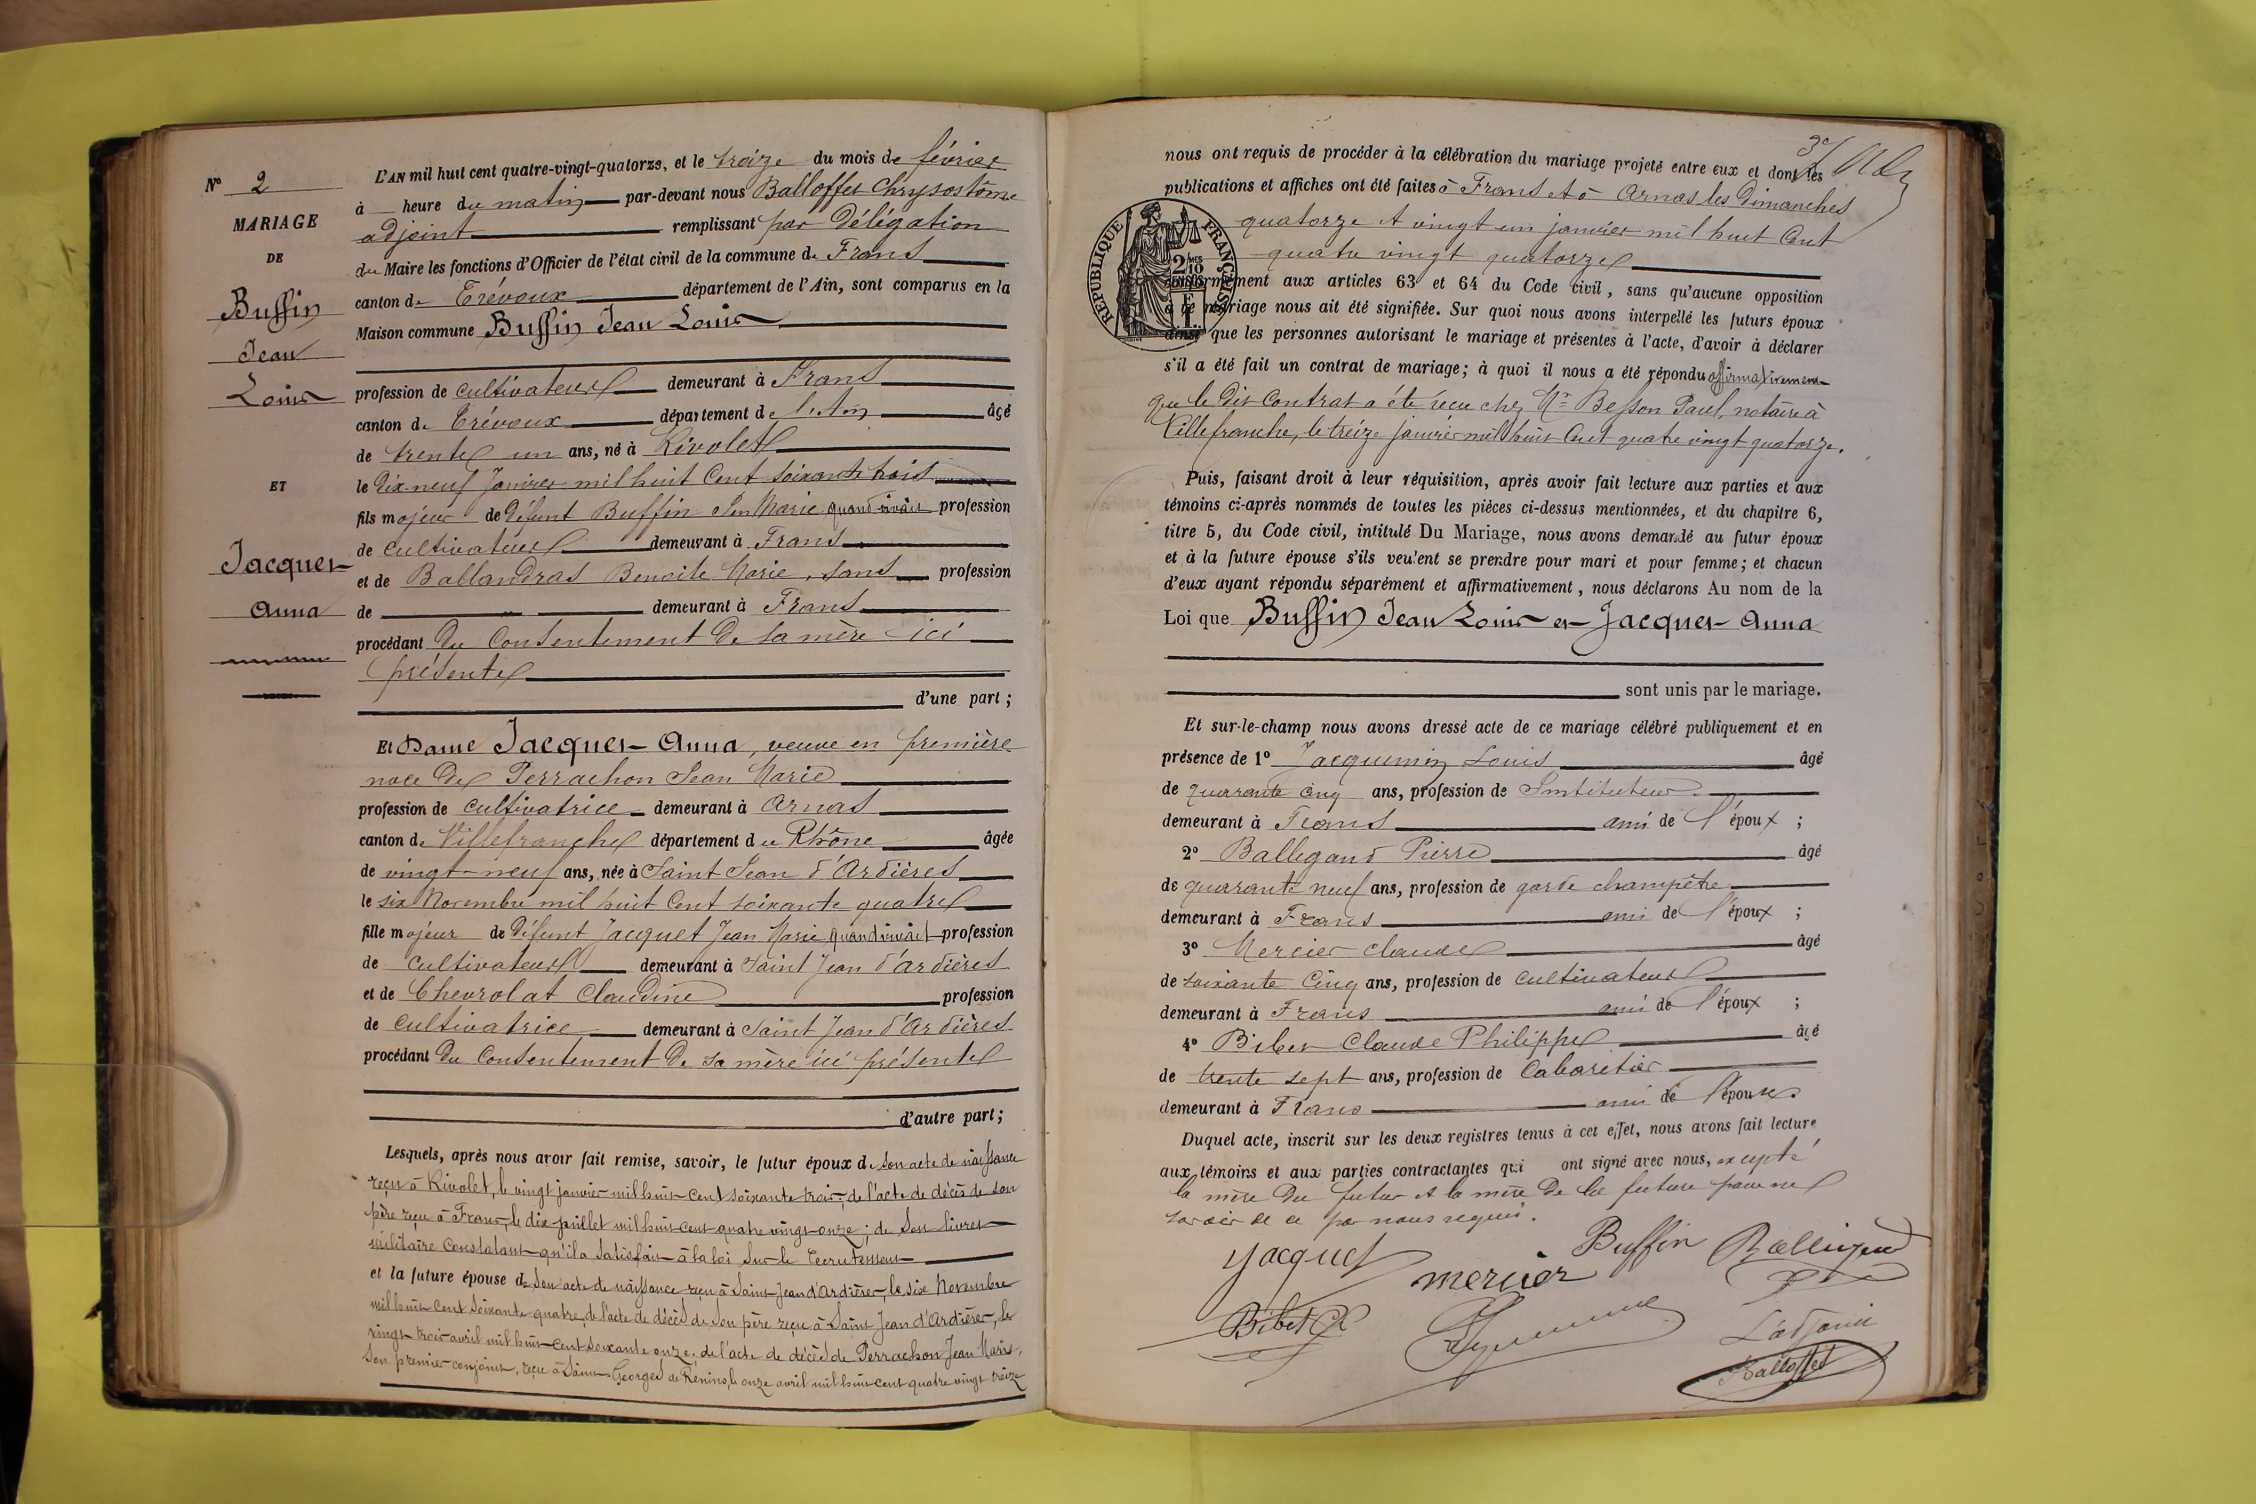 N° 2
MARIAGE
DE
Buffin
Jean
Louis
ET
Jacquet
Anna
L'AN mil huit cent quatre-vingt-quatorze, et le treize du mois de février
à heure du matin par-devant nous Balloffet Chrysostôme
adjoint remplissant par Délégation
du Maire les fonctions d'Officier de l'état civil de la commune de Frans
canton de Trévoux département de l'Ain, sont comparus en la
Maison commune Buffin Jean Louis
profession de cultivateur demeurant à Frans
canton de Trévoux département de l'Ain âgé
de trente un ans, né à Rivolet
le Dix neuf Janvier mil huit Cent soixante trois
fils majeur de Défunt Buffin Jean Marie quand vivait profession
de cultivateur demeurant à Frans
et de Ballandras Benoite Marie, sans profession
de demeurant à Frans
procédant Du Consentement De sa mère ici
présente
d'une part ;
Et Dame Jacquet Anna, veuve en première
noce De Perrachon Jean Marie
profession de cultivatrice demeurant à Arnas
canton de Villefranche département du Rhône âgée
de vingt-neuf ans, née à Saint Jean d'Ardières
le six Novembre mil huit Cent soixante quatre
fille majeur de Défunt Jacquet Jean Marie quand vivait profession
de cultivateur demeurant à Saint Jean d'Ardières
et de Chevrolat Claudine profession
de cultivatrice demeurant à Saint Jean d'Ardières
procédant Du Consentement De sa mère ici présente
d'autre part ;
Lesquels, après nous avoir fait remise, savoir, le futur époux de son acte de naissance
reçu à Rivolet, le vingt janvier mil huit cent soixante trois, de l'acte de décès de son
père reçu à Frans, le dix juillet mil huit cent quatre vingt onze ; de son livret
militaire constatant qu'il a satisfait à la loi sur le recrutement
et la future épouse de son acte de naissance reçu à Saint Jean d'Ardières, le six Novembre
mil huit cent soixante quatre, de l'acte de décès de son père reçu à Saint Jean d'Ardières, le
vingt trois avril mil huit cent soixante onze, de l'acte de décès de Perrachon Jean Marie,
son premier conjoint, reçu à Saint Georges de Renins, le onze avril mil huit cent quatre vingt treize
nous ont requis de procéder à la célébration du mariage projeté entre eux et dont les
publications et affiches ont été faites à Frans et à Arnas les Dimanches
quatorze et vingt un janvier mil huit Cent
quatre vingt quatorze
RÉPUBLIQUE FRANÇAISE
conformément aux articles 63 et 64 du Code civil, sans qu'aucune opposition
à ce mariage nous ait été signifiée. Sur quoi nous avons interpellé les futurs époux
ainsi que les personnes autorisant le mariage et présentes à l'acte, d'avoir à déclarer
s'il a été fait un contrat de mariage ; à quoi il nous a été répondu affirmativement
que le Dit Contrat a été reçu chez Me Besson Paul, notaire à
Villefranche, le treize janvier mil huit Cent quatre vingt quatorze.
Puis, faisant droit à leur réquisition, après avoir fait lecture aux parties et aux
témoins ci-après nommés de toutes les pièces ci-dessus mentionnées, et du chapitre 6,
titre 5, du Code civil, intitulé Du Mariage, nous avons demandé au futur époux
et à la future épouse s'ils veulent se prendre pour mari et pour femme ; et chacun
d'eux ayant répondu séparément et affirmativement, nous déclarons Au nom de la
Loi que Buffin Jean Louis et Jacquet Anna
sont unis par le mariage.
Et sur-le-champ nous avons dressé acte de ce mariage célébré publiquement et en
présence de 1° Jacquemin Louis âgé
de quarante cinq ans, profession de Instituteur
demeurant à Frans ami de l'époux ;
2° Ballegand Pierre âgé
de quarante neuf ans, profession de garde champêtre
demeurant à Frans ami de l'époux ;
3° Mercier Claude âgé
de soixante Cinq ans, profession de cultivateur
demeurant à Frans ami de l'époux ;
4° Bibet Claude Philippe âgé
de trente sept ans, profession de Cabaretier
demeurant à Frans ami de l'époux.
Duquel acte, inscrit sur les deux registres tenus à cet effet, nous avons fait lecture
aux témoins et aux parties contractantes qui ont signé avec nous, excepté
la mère Du futur et la mère De la future pour ne
savoir de ce par nous requis.
Jacquet mercier Buffin Ballegand
Bibet L'adjoint
Balloffet